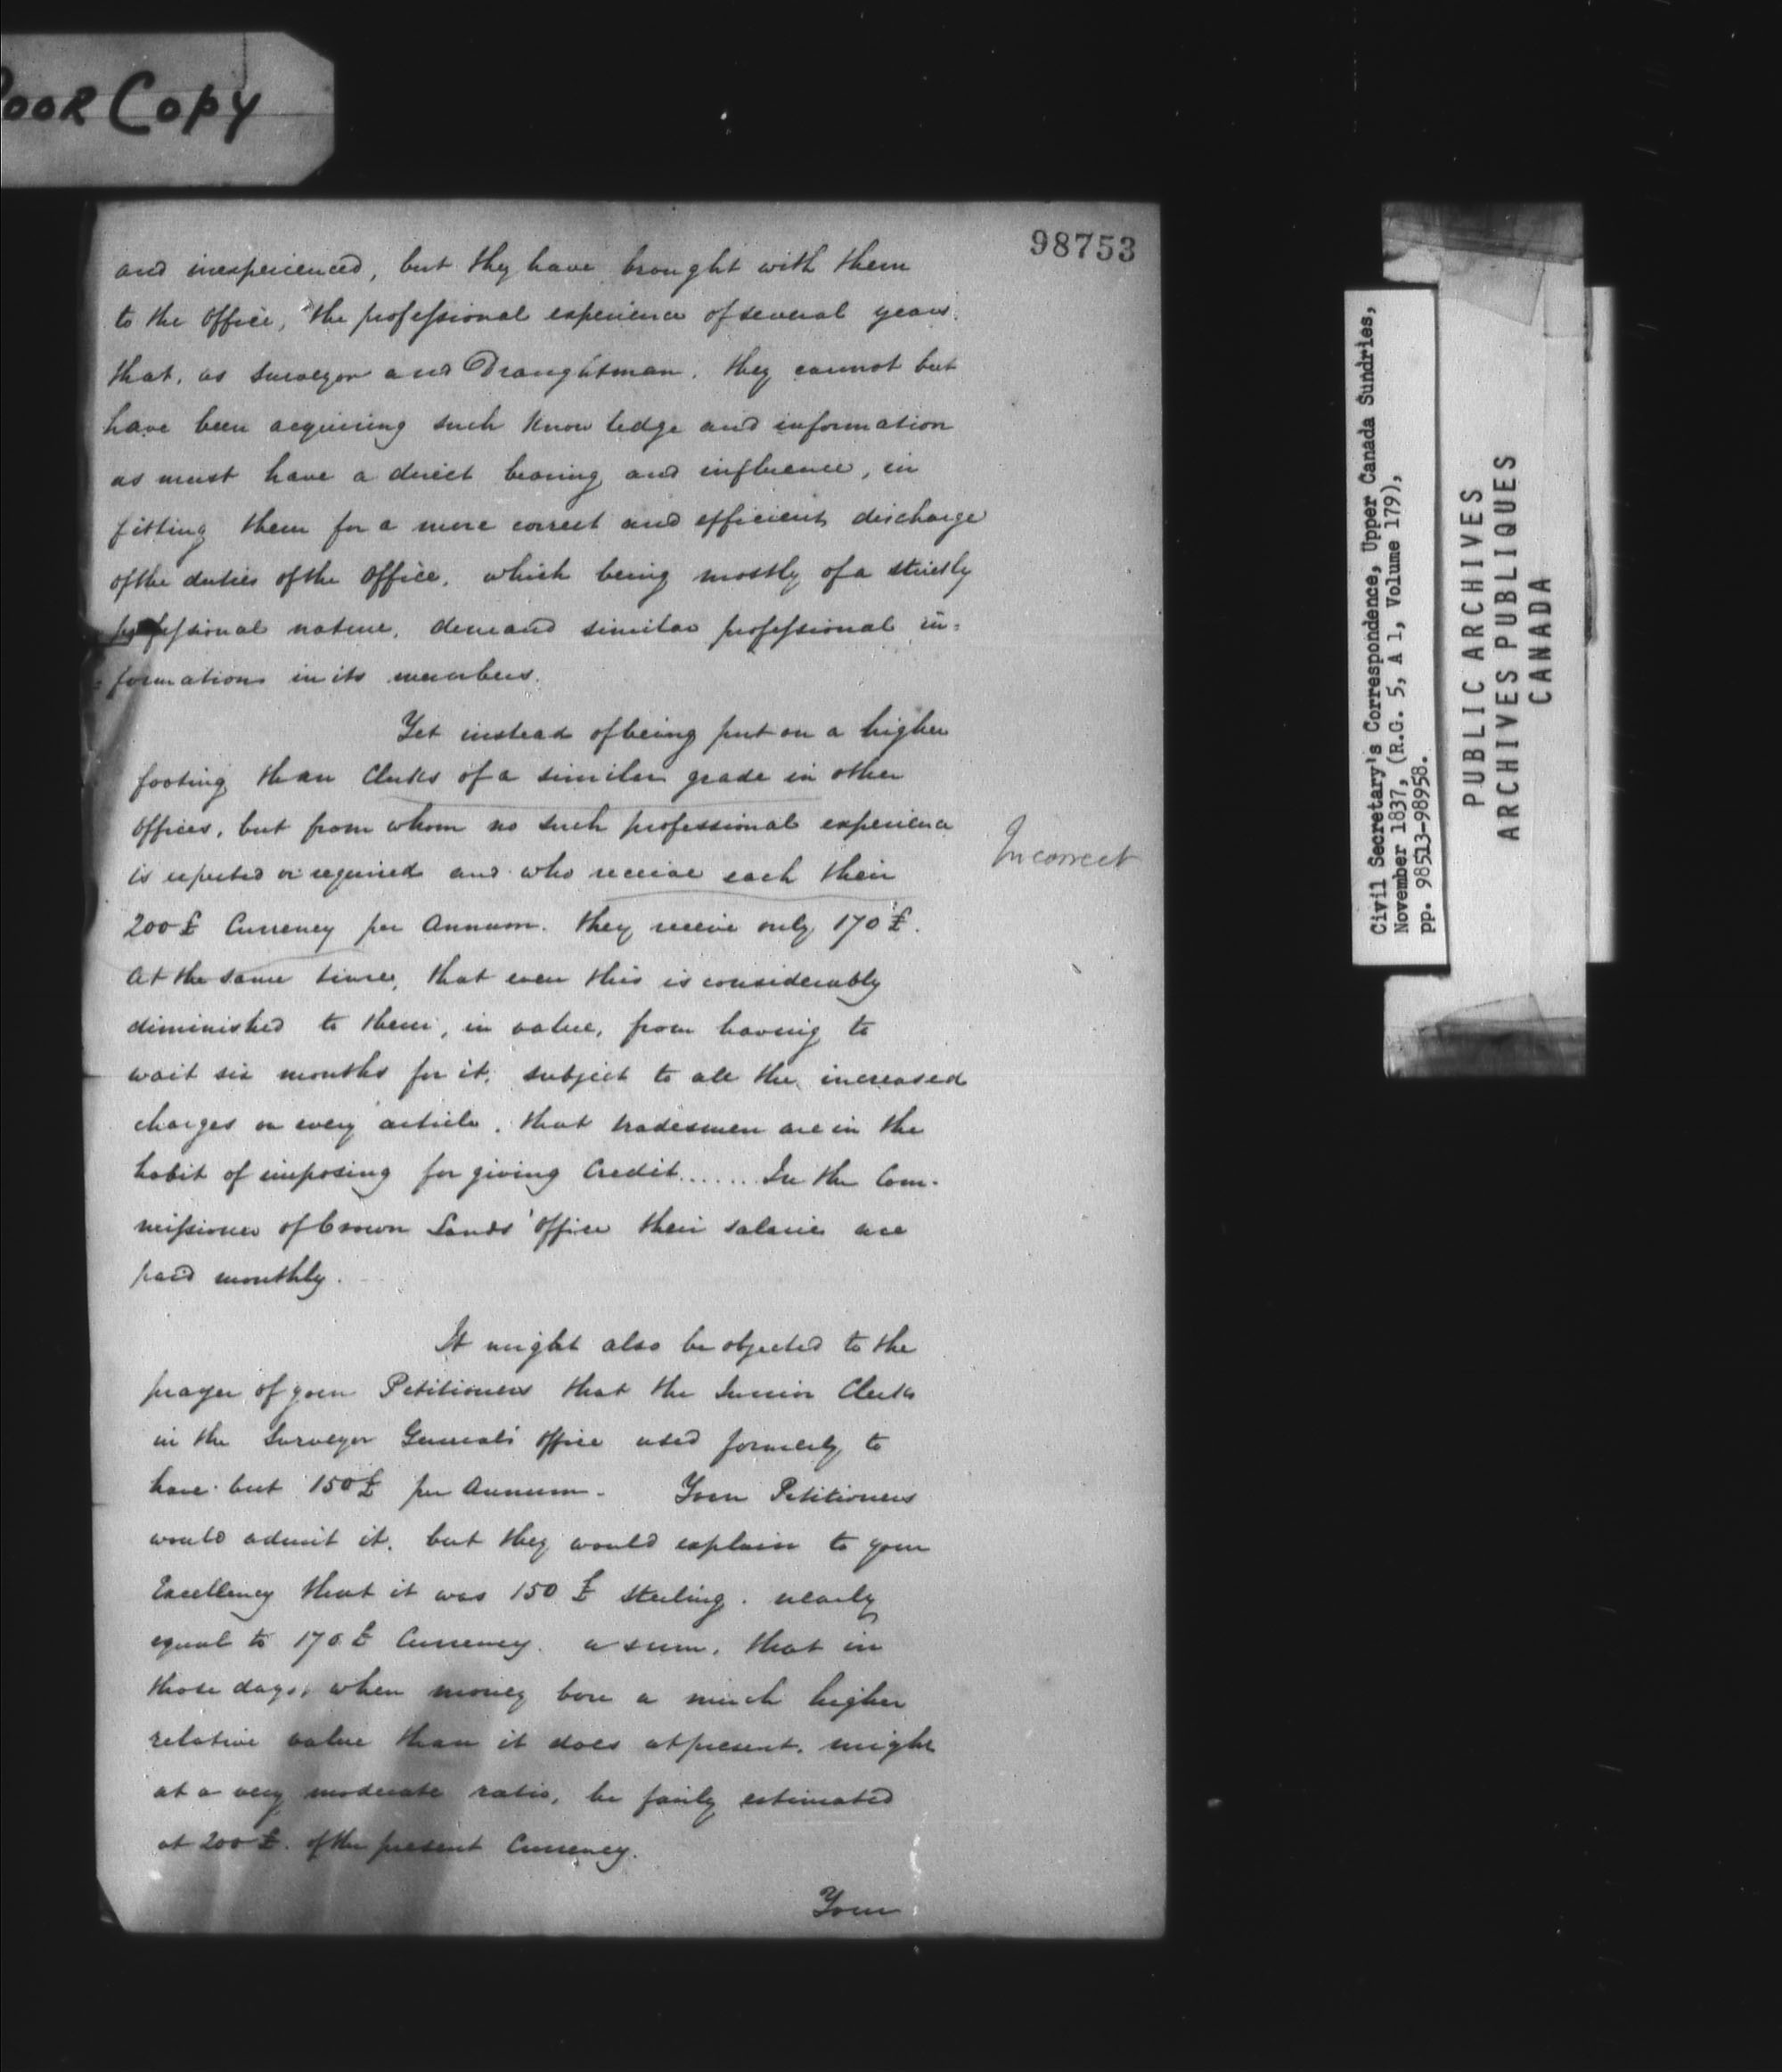 Poor Copy
98753
and inexperienced, but they have brought with them
to the Office, the professional experience of several years.
that, as Surveyor and Draughtsman, they cannot but
have been acquiring such Knowledge and information
as must have a direct bearing and influence, in
fitting them for a more correct and efficient discharge
of the duties of the Office, which being mostly of a strictly
professional nature, demand similar professional in=
=formations in its members.
Yet instead of being put on a higher
footing than Clerks of a similar grade in other
Offices, but from whom no such professional experience
is expected or required and who receive each their
Incorrect
200£ Currency per Annum. they receive only 170£.
At the same time, that even this is considerably
diminished to them, in value, from having to
wait six months for it, subject to all the increased
charges on every article, that tradesmen are in the
habit of imposing for giving Credit...... In the Com-
missioner of Crown Lands' Office their salaries are
paid monthly.
It might also be objected to the
prayer of your Petitioners that the Junior Clerks
in the Surveyor General's Office used formerly to
have but 150£ per Annum. Your Petitioners
would admit it, but they would explain to your
Excellency that it was 150£ Sterling, nearly
equal to 170£ Currency. a sum, that in
those days, when money bore a much higher
relative value than it does at present, might
at a very moderate ratio, be fairly estimated
at 200£. of the present Currency.
Your
Civil Secretary's Correspondence, Upper Canada Sundries,
November 1837, (R.G. 5, A 1, Volume 179),
pp. 98513-98958.
PUBLIC ARCHIVES
ARCHIVES PUBLIQUES
CANADA